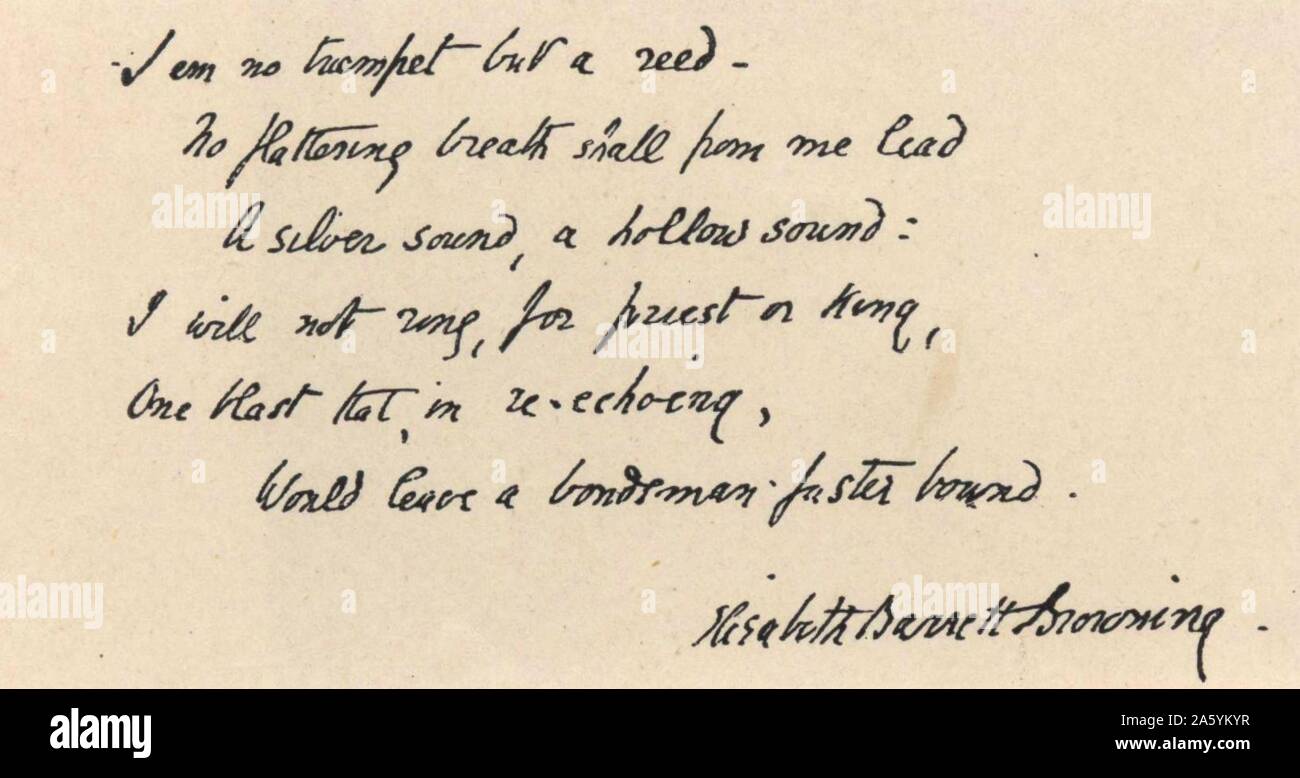 I am no trumpet but a reed -
No flattering breath shall from me lead
A silver sound, a hollow sound:
I will not ring, for priest or king,
One blast that, in re-echoing,
Would leave a bondsman faster bound.
Elizabeth Barrett Browning.
alamy
alamy
Image ID: 2A5YKYR
www.alamy.com